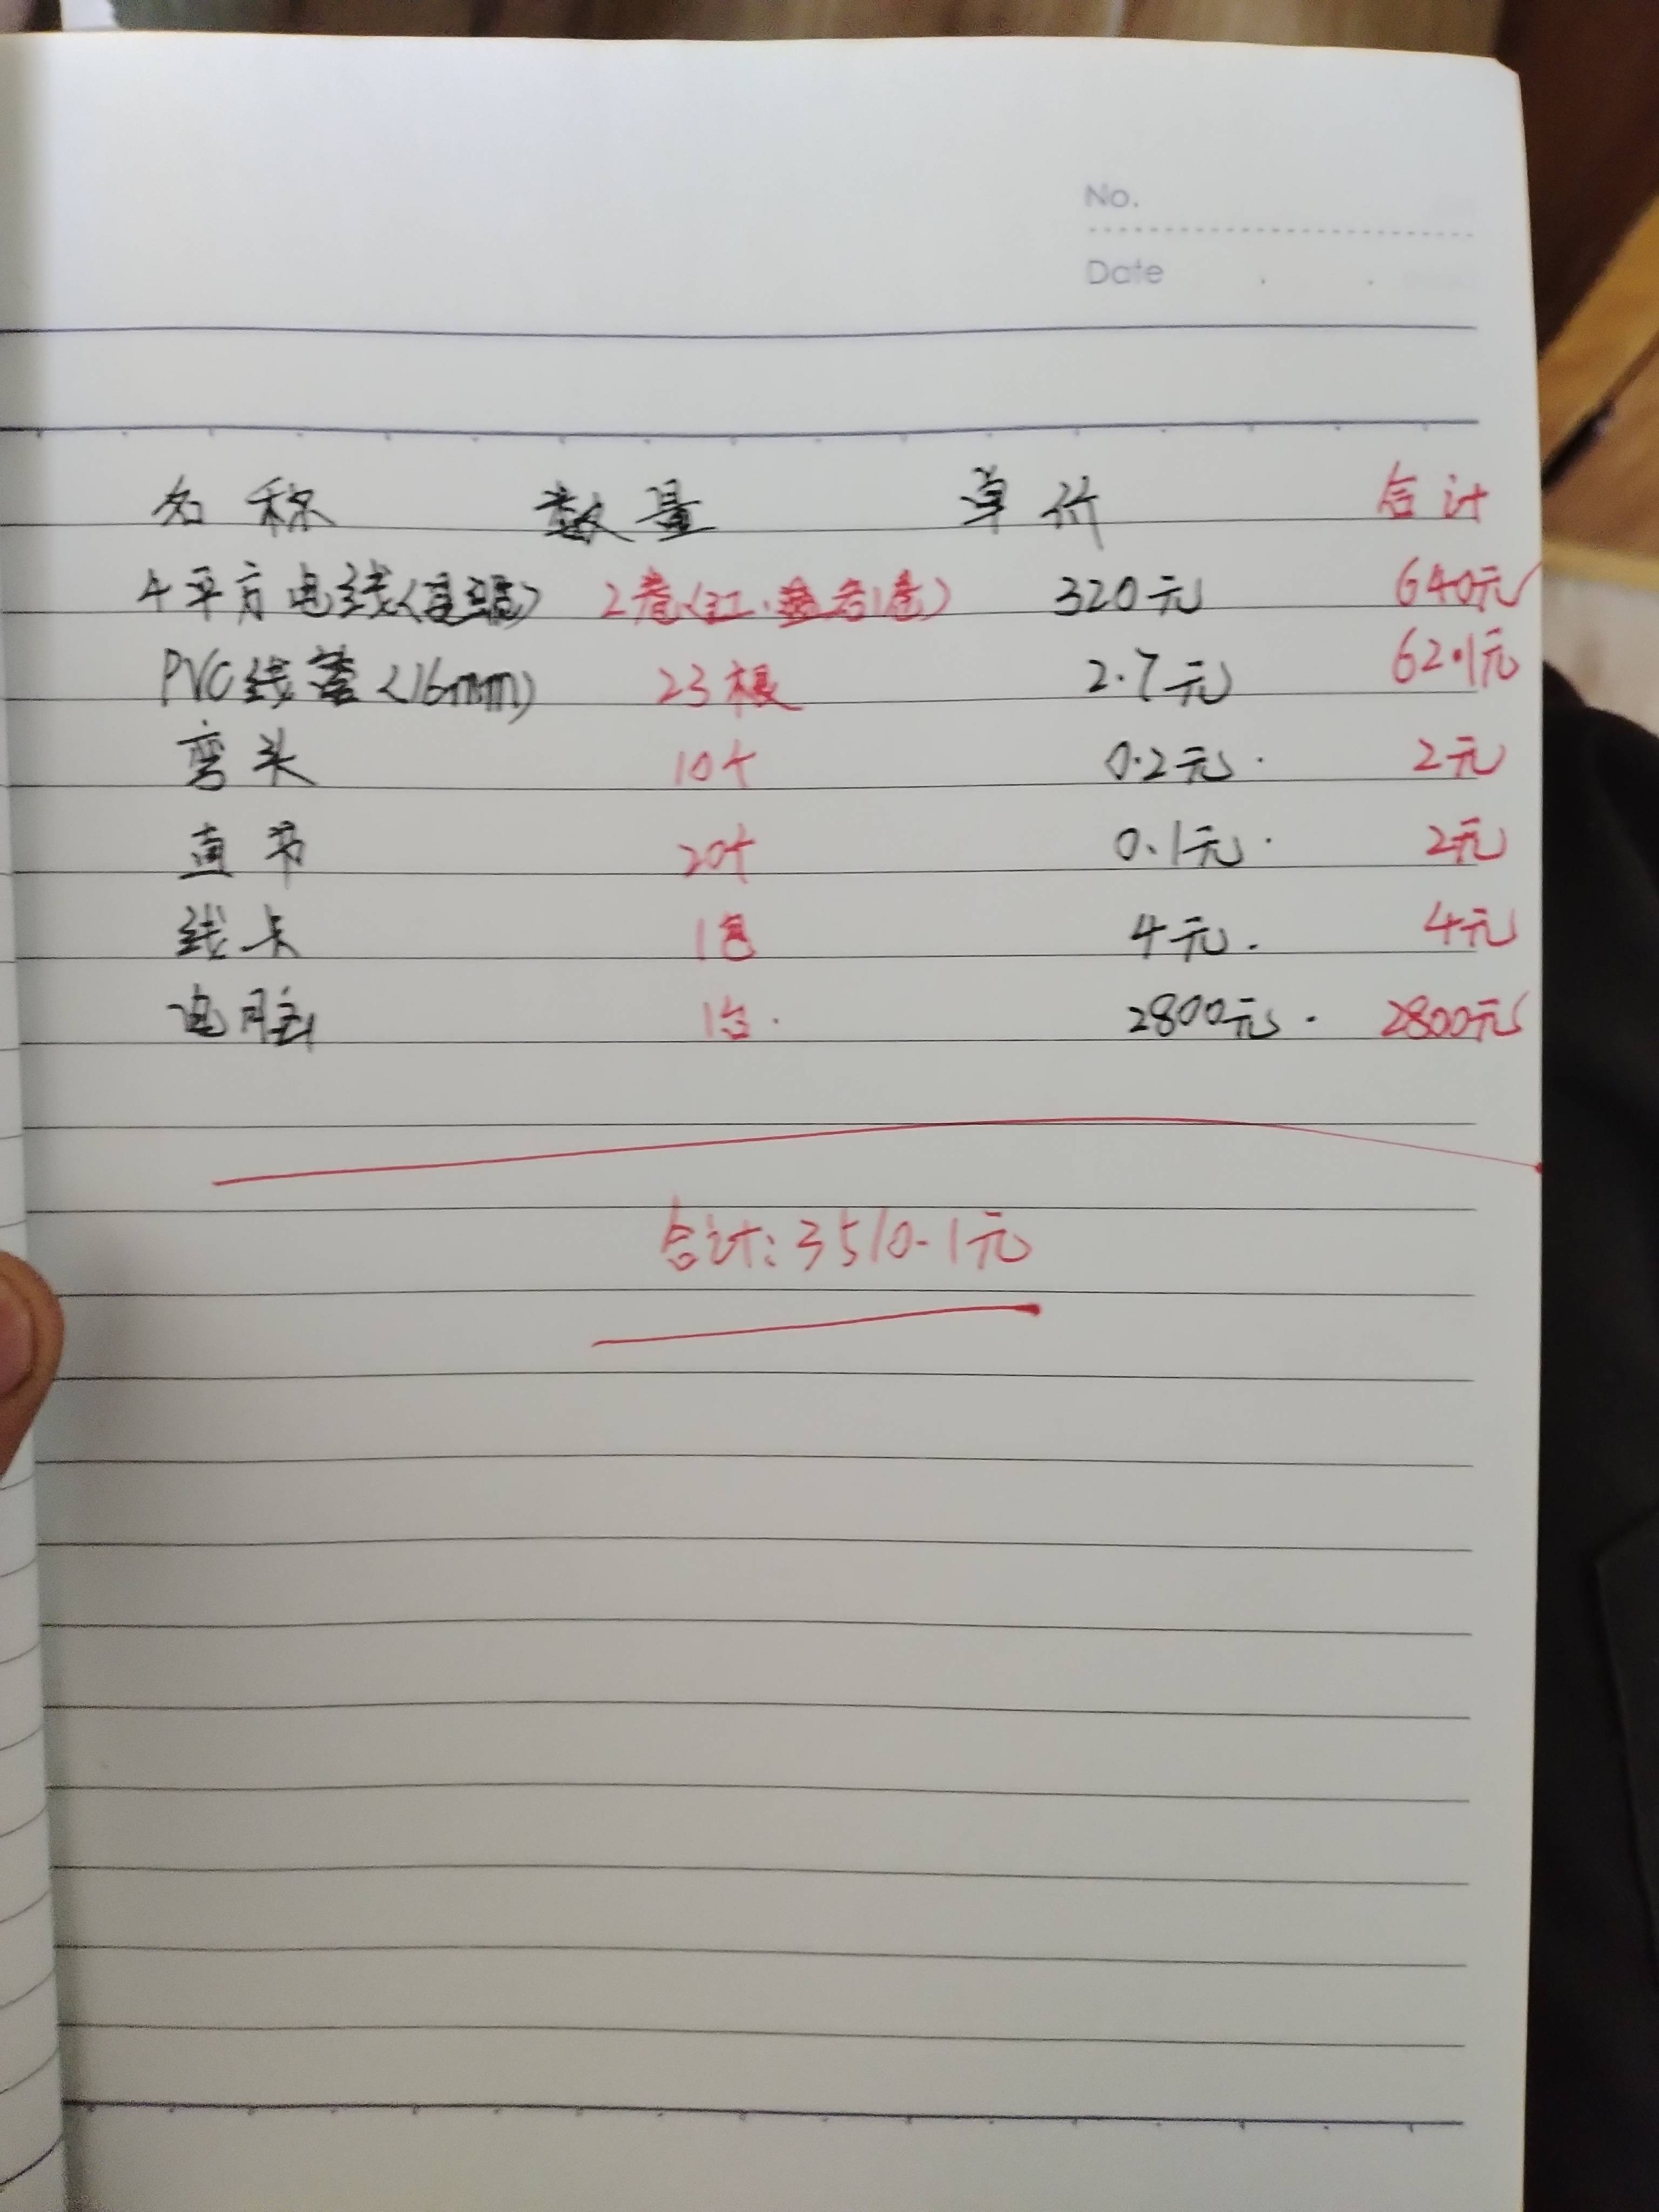 No.
Date
名称 数量 单价 合计
4平方电线 2卷(红、蓝各1卷) 320元 640元
PVC线管(16mm) 23根 2.7元 62.1元
弯头 10个 0.2元. 2元
直节 20个 0.1元. 2元
线卡 1包 4元. 4元
电脑 1台. 2800元. 2800元
合计:3510.1元